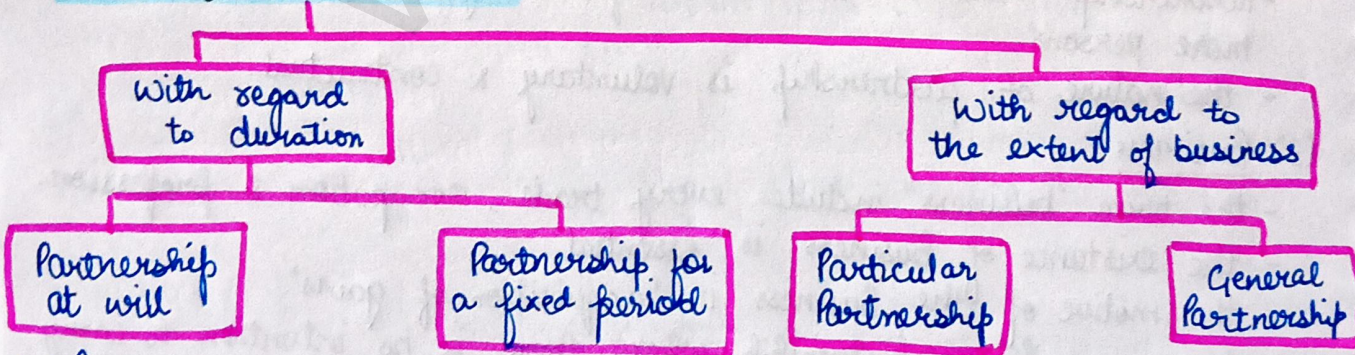 with regard
to duration
With regard to
the extent of business
Partnership
at will
Partnership for
a fixed period
Particular
Partnership
General
Partnership